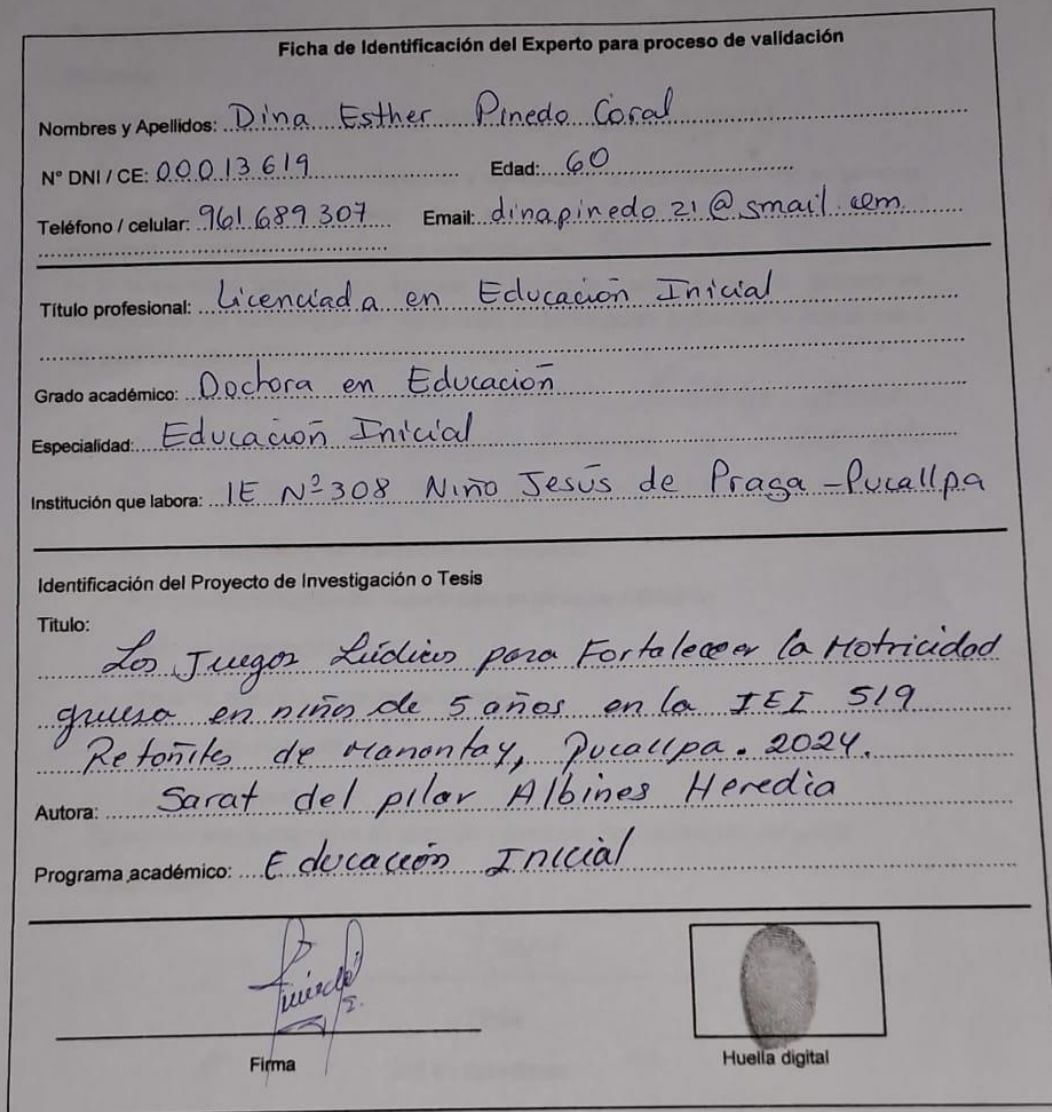 Ficha de Identificación del Experto para proceso de validación
Nombres y Apellidos: Dina Esther Pinedo Coral
N° DNI / CE: 00013619 Edad: 60
Teléfono / celular: 961 689 307 Email: dinapinedo 21 @ smail.com
Título profesional: Licenciada en Educación Inicial
Grado académico: Doctora en Educación
Especialidad: Educación Inicial
Institución que labora: IE Nº 308 Niño Jesús de Praga - Pucallpa
Identificación del Proyecto de Investigación o Tesis
Titulo:
Los Juegos Lúdicos para Fortalecer la Motricidad
gruesa en niños de 5 años en la IEI 519
Retoñitos de Manantay, Pucallpa. 2024.
Autora: Sarat del pilar Albines Heredia
Programa académico: Educación Inicial
Firma
Huella digital